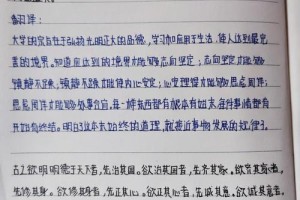 大学的宗旨在于弘扬光明正大的品德,学习和应用于生活,使人达到最完
善的境界。知道应达到的境界才能够志向坚定;志向坚定才能够
镇静不躁;镇静不躁才能够心安定;心安理得才能够思虑周详;
思虑周详才能够处事合宜。每一样东西都有根本有始末,每件事情都有
开始有终结。明白了这本末始终的道理,就接近事物发展的规律了。
古之欲明明德于天下者,先治其国。欲治其国者,先齐其家。欲齐其家者,
先修其身。欲修其身者,先正其心。欲正其心者,先诚其意。欲诚其意者,